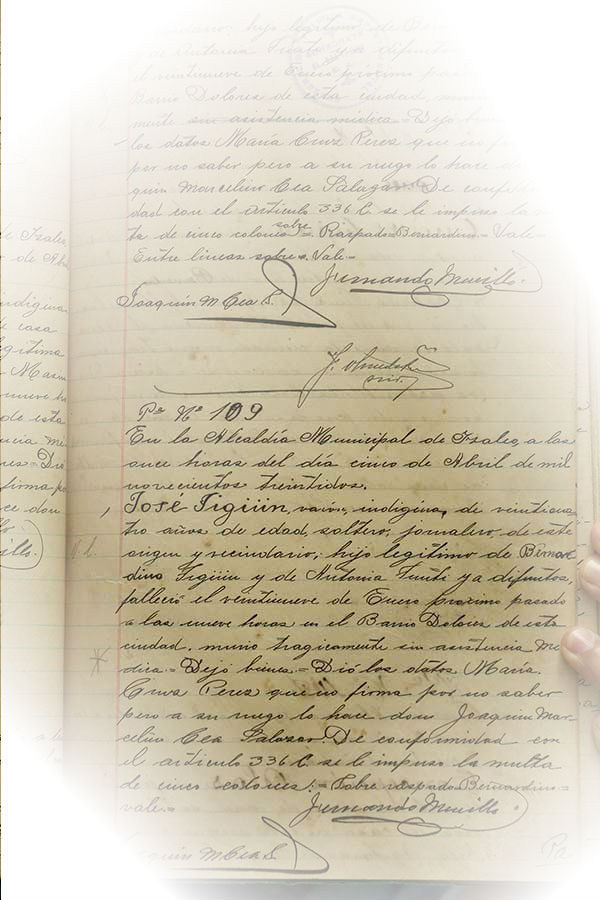 hijo legitimo de Ber
de Antonia Tunti ya difuntos
el veintinueve de Enero próximo pasa
Barrio Dolores de esta ciudad, mu
mente sin asistencia médica.= Dejó b
los datos María Cruz Perez que no f
por no saber pero a su ruego lo hace d
quin Marcelino Cea Salazar. De confor
dad con el artículo 336 C. se le impuso la m
ta de cinco colones = Raspado = Bernardino = Vale =
sobre
Entre lineas sobre = Vale =
Fernando Murillo.
Joaquin M Cea S.
J. Olmedo
srio.
Pa. No. 109
En la Alcaldía Municipal de Izalco, a las
once horas del día cinco de Abril de mil
novecientos treintidos.
José Tigüin, varón, indígena, de veinticua
tro años de edad, soltero, jornalero, de este
origen y vecindario; hijo legítimo de Bernar
dino Tigüin y de Antonia Tunti ya difuntos,
falleció el veintinueve de Enero proximo pasado
a las nueve horas en el Barrio Dolores de esta
ciudad. murio trágicamente sin asistencia Mé
dica.= Dejó bienes.= Dió los datos María
Cruz Perez que no firma por no saber
pero a su ruego lo hace don Joaquin Mar
celino Cea Salazar. De conformidad con
el artículo 336 C. se le impuso la multa
de cinco colones.= Sobre raspado Bernardino =
vale.=
Fernando Murillo
quin M Cea S.
Pa